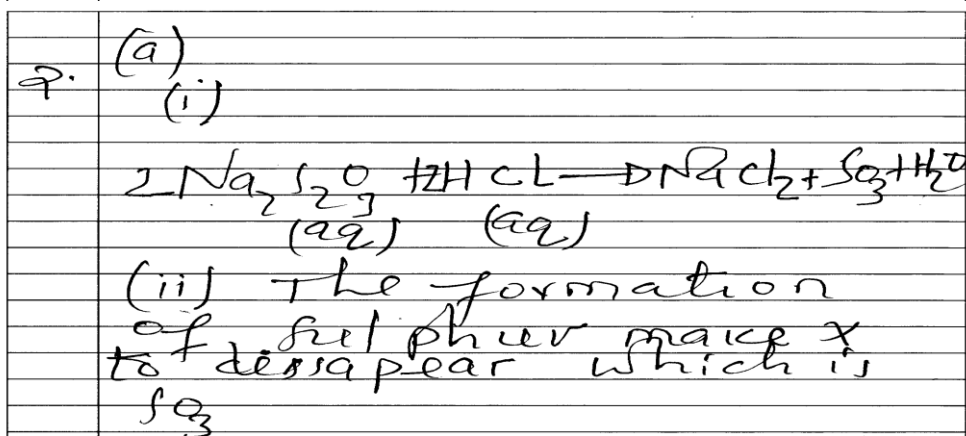 2. (a)
(i)
2Na₂S₂O₃ + 2HCL → NaCl₂ + SO₃ + H₂O
(aq) (aq)
(ii) The formation
of sulphur make x
to dessapear which is
SO₃